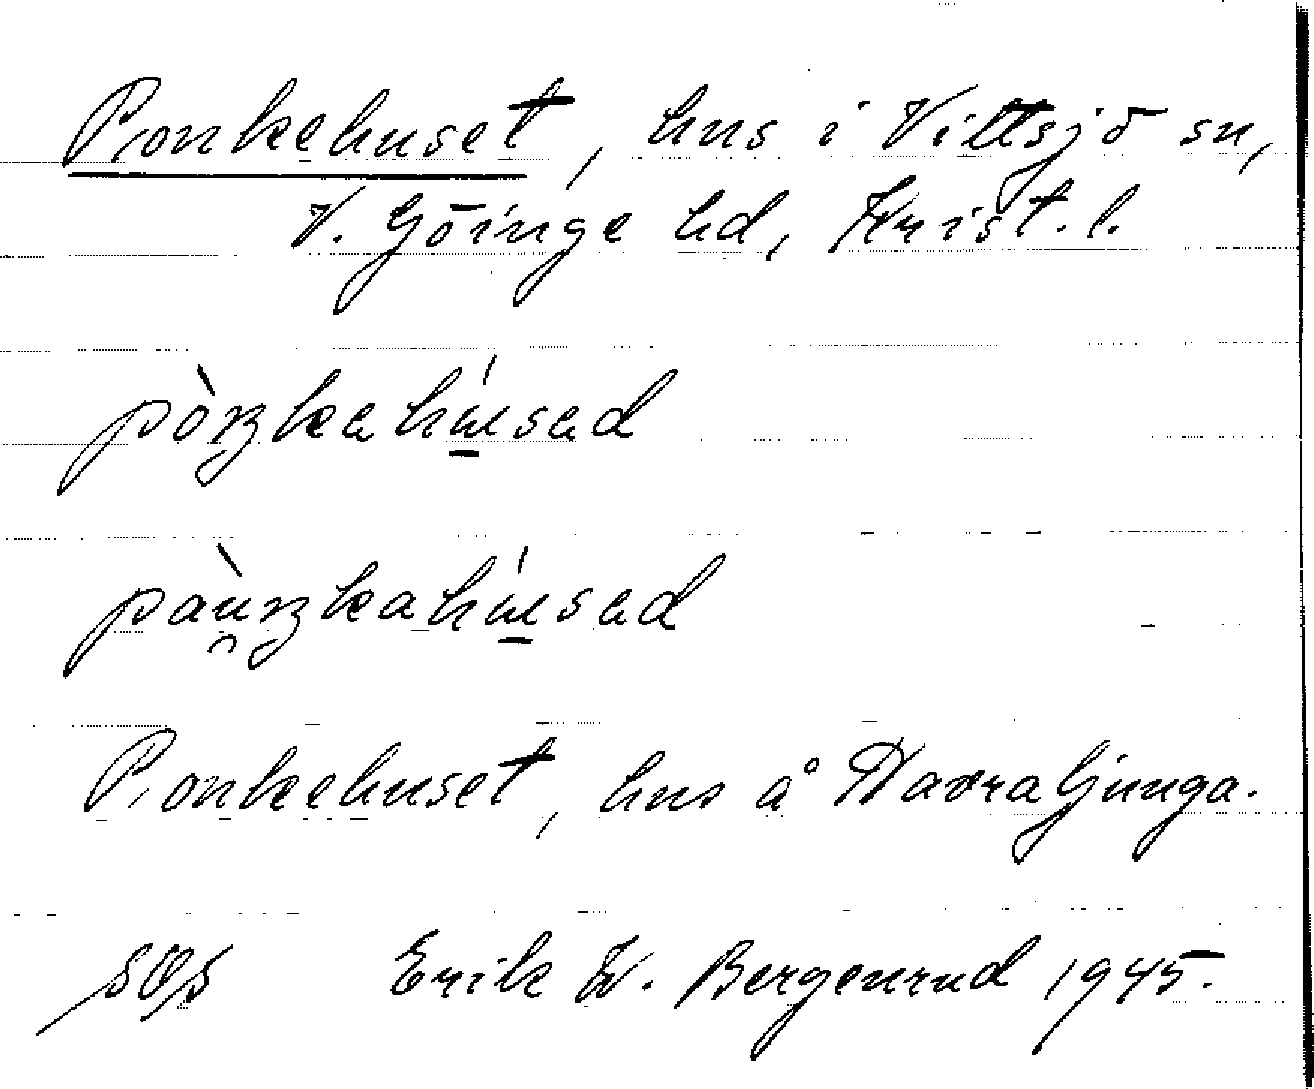 Ponkehuset, hus i Vittsjö sn,
V. Göinge hd, Krist. l.
pòŋkahúsad
pàuŋkahúsad
Ponkehuset, hus å Havraljunga.
Erik W. Bergenrud 1945.